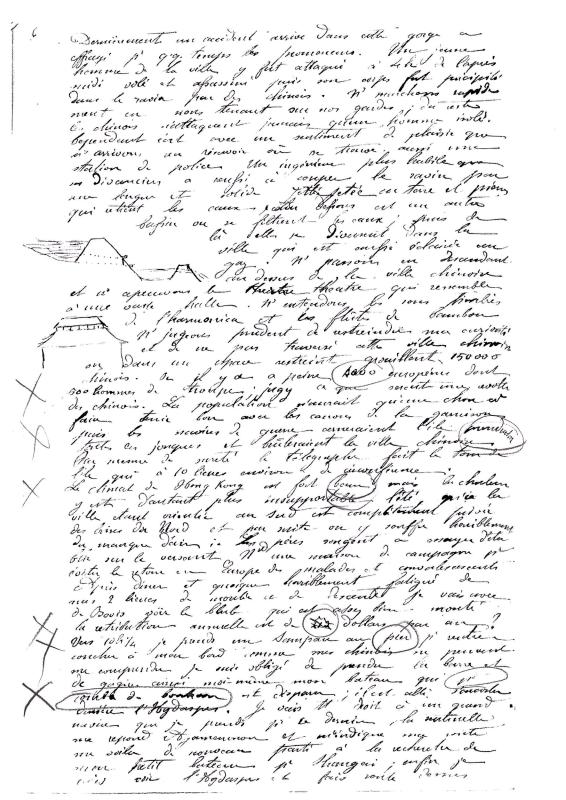 6
Dernièrement un accident arrivé dans cette gorge a
effrayé pr qq temps les promeneurs. Un jeune
homme de la ville y fut attaqué à 4h de l'après
midi volé et assassiné puis son corps fut précipité
dans le ravin par des chinois. Ns marchons rapide
ment en nous tenant sur nos gardes, du reste
les chinois n'attaquent jamais qu'un homme isolé.
Cependant c'est avec un sentiment de plaisir que
ns arrivons au réservoir où se trouve aussi une
station de police. Un ingénieur plus habile que
ses devanciers a réussi à couper le ravin par
une longue et solide jetée en terre et pierres
qui retient les eaux. bassin est un autre
bassin où se filtrent les eaux ; puis de
là elles se divisent dans la
ville qui est aussi éclairée au
gaz. Ns passons en descendant
au dessus de la ville chinoise
et ns apercevons le théâtre qui ressemble
à une vaste halle. Ns entendons les sons
de l'harmonica et les flûtes de bambou
Ns jugeons prudent de restreindre ma curiosité
et de ne pas traverser cette ville chinoise
où dans un espace restreint grouillent 150000
chinois. On il y a à peine européens dont
300 hommes de troupe ; à que serait une révolte
des chinois. La population n'aurait qu'une chose à
faire tenir bon avec les canons de la garnison
puis les navires de guerre cerneraient l'île
toutes ces jonques et brûleraient la ville chinoise
Par mesure de sûreté le télégraphe fait le tour de
l'île qui a 10 lieues environ de circonférence.
Le climat de Hong Kong est fort mais la chaleur
y est d'autant plus insupportable l'été que la
ville étant orientée au sud est complètement privée
des brises du Nord et par suite on y souffre horriblement
du manque d'air ; les pères songent à essayer d'éta
blir sur le versant Nord une maison de campagne pr
éviter le retour en Europe des malades et convalescents
Après dîner et quoique horriblement fatigué de
mes 2 lieues de montée et de descente je vais avec
de Bovis voir le club qui est assez bien monté
la rétribution annuelle est de dollars par an ?
Vers 10h¼ je prends un sampan au pr rentrer
coucher à mon bord comme mes chinois ne peuvent
me comprendre je suis obligé de prendre la barre et
de gagner ainsi moi-même mon bateau qui
est disparu ; il est allé
l'Hydaspe. Je vais tt droit à un grand
navire que je prends pr ce dernier ; la sentinelle
me répond Agamemnon et m'indique
ma voile de nouveau parti à la recherche de
mon petit bateau pr Shangaï, enfin je
l'Hydaspe et fais route dessus